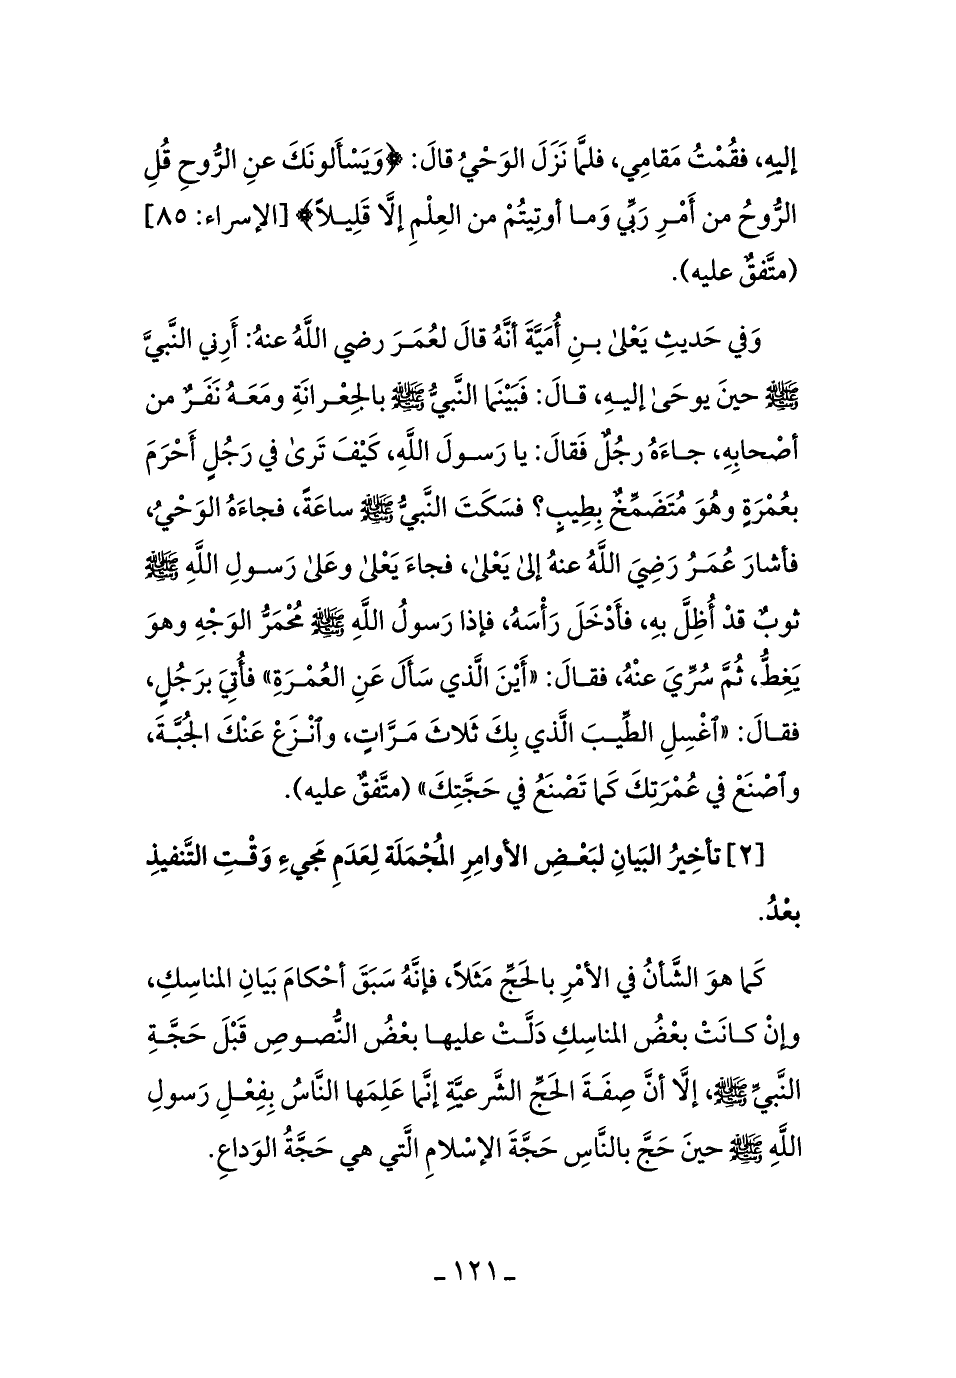 إليهِ، فقُمْتُ مَقامِي، فلمَّا نَزَلَ الوَحْيُ قالَ: ﴿وَيَسْأَلونَكَ عنِ الرُّوحِ قُلِ
الرُّوحُ من أَمْـرِ رَبِّي وَمـا أوتِيتُمْ من العِلْمِ إلَّا قَلِيـلاً﴾ [الإسراء: ٨٥]
(متَّفقٌ عليه).
وَفي حَديثِ يَعْلىٰ بـنِ أُمَيَّةَ أنَّهُ قالَ لعُمَـرَ رضي اللَّهُ عنهُ: أَرِني النَّبيَّ
ﷺ حينَ يوحَىٰ إليـهِ، قـالَ: فَبَيْنَما النَّبيُّ ﷺ بالجِعْـرانَةِ ومَعَـهُ نَفَـرٌ من
أصْحابِهِ، جـاءَهُ رجُلٌ فَقالَ: يا رَسـولَ اللَّهِ، كَيْفَ تَرىٰ في رَجُلٍ أحْرَمَ
بعُمْرَةٍ وهُوَ مُتَضَمِّخٌ بِطِيبٍ؟ فسَكَتَ النَّبيُّ ﷺ ساعَةً، فجاءَهُ الوَحْيُ،
فأشارَ عُمَـرُ رَضِيَ اللَّهُ عنهُ إلىٰ يَعْلىٰ، فجاءَ يَعْلىٰ وعَلىٰ رَسـولِ اللَّهِ ﷺ
ثوبٌ قدْ أُظِلَّ بهِ، فأَدْخَلَ رَأْسَهُ، فإذا رَسولُ اللَّهِ ﷺ مُحْمَرُّ الوَجْهِ وهوَ
يَغِطُّ، ثُمَّ سُرِّيَ عنْهُ، فقـالَ: «أَيْنَ الَّذي سَأَلَ عَنِ العُمْـرَةِ» فأُتِيَ برَجُلٍ،
فقـالَ: «ٱغْسِلِ الطِّيـبَ الَّذي بِكَ ثَلاثَ مَـرَّاتٍ، وٱنْـزَعْ عَنْكَ الجُبَّـةَ،
وٱصْنَعْ في عُمْرَتِكَ كَما تَصْنَعُ في حَجَّتِكَ» (متَّفقٌ عليه).
[٢] تأخيرُ البَيانِ لبَعْـضِ الأوامِرِ المُجْمَلَة لِعَدَمِ مَجيءِ وَقْـتِ التَّنفيذِ
بعْدُ.
كَما هوَ الشَّأنُ في الأمْرِ بالحَجِّ مَثَلاً، فإنَّهُ سَبَقَ أحْكامَ بَيانِ المناسِكِ،
وإنْ كـانَتْ بعْضُ المناسِكِ دَلَّـتْ عليهـا بعْضُ النُّصـوصِ قَبْلَ حَجَّـةِ
النَّبيِّ ﷺ، إلَّا أنَّ صِفَـةَ الحَجِّ الشَّرعيَّةِ إنَّما عَلِمَها النَّاسُ بِفِعْـلِ رَسولِ
اللَّهِ ﷺ حينَ حَجَّ بالنَّاسِ حَجَّةَ الإسْلامِ الَّتي هي حَجَّةُ الوَداعِ.
ـ ١٢١ ـ